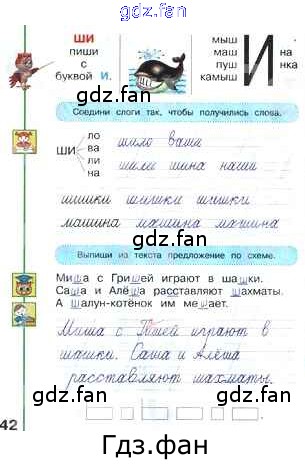 gdz.fan
ШИ
пиши
с
буквой И.
gdz.fan
мыш
маш
пуш
камыш
И
на
нка
Соедини слоги так, чтобы получились слова.
gdz.fan
ШИ
ло
ва
ли
на
шило ваши
шили шина наши
шишки шишки шишки
gdz.fan
машина машина машина
Выпиши из текста предложение по схеме.
gdz.fan
Миша с Гришей играют в шашки.
Саша и Алёша расставляют шахматы.
А Шалун-котёнок им мешает.
gdz.fan
Миша с Гошей играют в
шашки. Саша и Алёша
расставляют шахматы.
gdz.fan
42
Гдз.фан